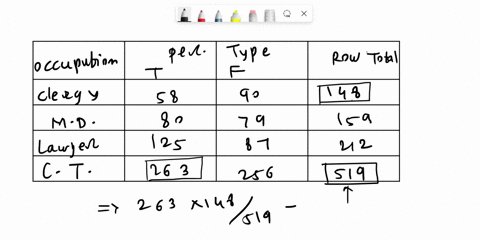 occupubion per. Type Row Total
T F
clergy 58 90 148
M.D. 80 79 159
Lawyer 125 87 212
C. T. 263 256 519
⇒ 263 × 148/519 =